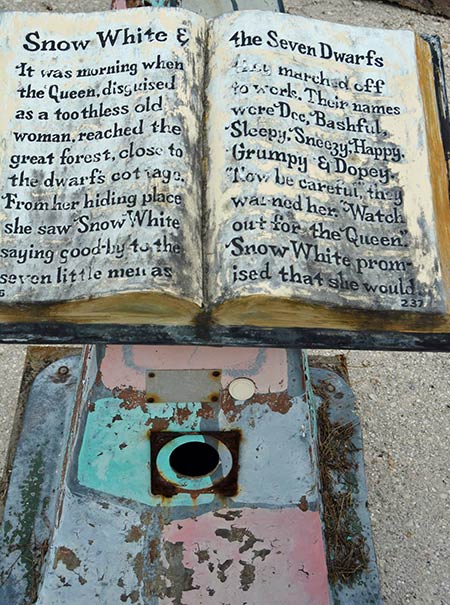 Snow White &
It was morning when
the Queen, disguised
as a toothless old
woman, reached the
great forest, close to
the dwarfs cottage.
From her hiding place
she saw Snow White
saying good-by to the
seven little men as
the Seven Dwarfs
they marched off
to work. Their names
were Doc, Bashful,
Sleepy, Sneezy, Happy,
Grumpy & Dopey.
"Now be careful," they
warned her. "Watch
out for the Queen."
Snow White prom-
ised that she would.
237